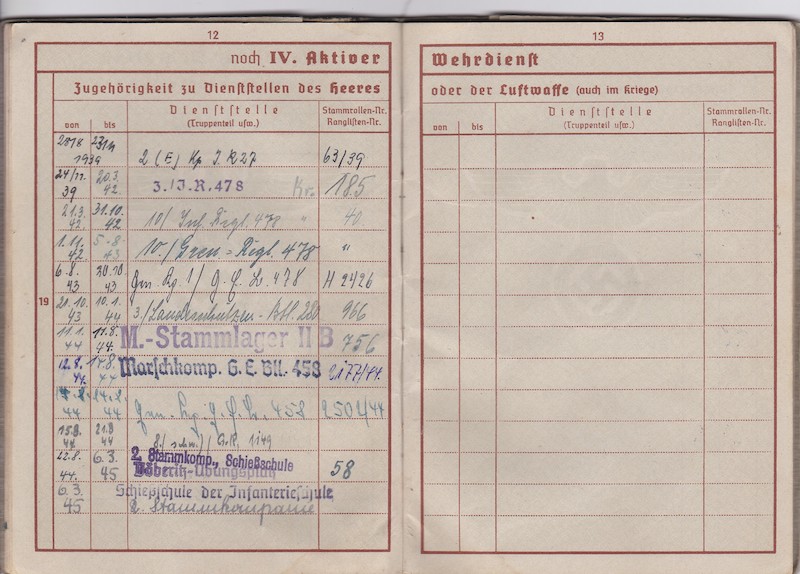 12
noch IV. Aktiver
Zugehörigkeit zu Dienststellen des Heeres
von bis Dienststelle (Truppenteil usw.) Stammrollen-Nr. Ranglisten-Nr.
19
1939 2 (E) Kp I.R 27 63/39
24/11. 39 20.3. 42 3./J.R.478 185
21.3. 42. 31.10. 42. 10/ Inf. Regt. 478 " 40.
1.11. 42 5.8. 43 10./ Gren.-Regt. 478 "
6.8. 43 20.10. 43 / G. E. 478 H 2426
21.10. 43 10.1. 44 3./Landesschützen-Btl. 280 966
11.1. 44 11.8. 44. M.-Stammlager II B 756
12.8. 44. 14.8. 44 Marschkomp. G. E. Btl. 458 2177/44.
44 44 458 2504/44
15.8. 44 21.8 44 8./ (schw.)/ G.R. 1149
22.8. 44. 6.3. 45 2. Stammkomp., Schießschule
Döberitz-Übungsplatz 58
6.3. 45 Schießschule der Infanterieschule
2. Stammkompanie
13
Wehrdienst
oder der Luftwaffe (auch im Kriege)
von bis Dienststelle (Truppenteil usw.) Stammrollen-Nr. Ranglisten-Nr.